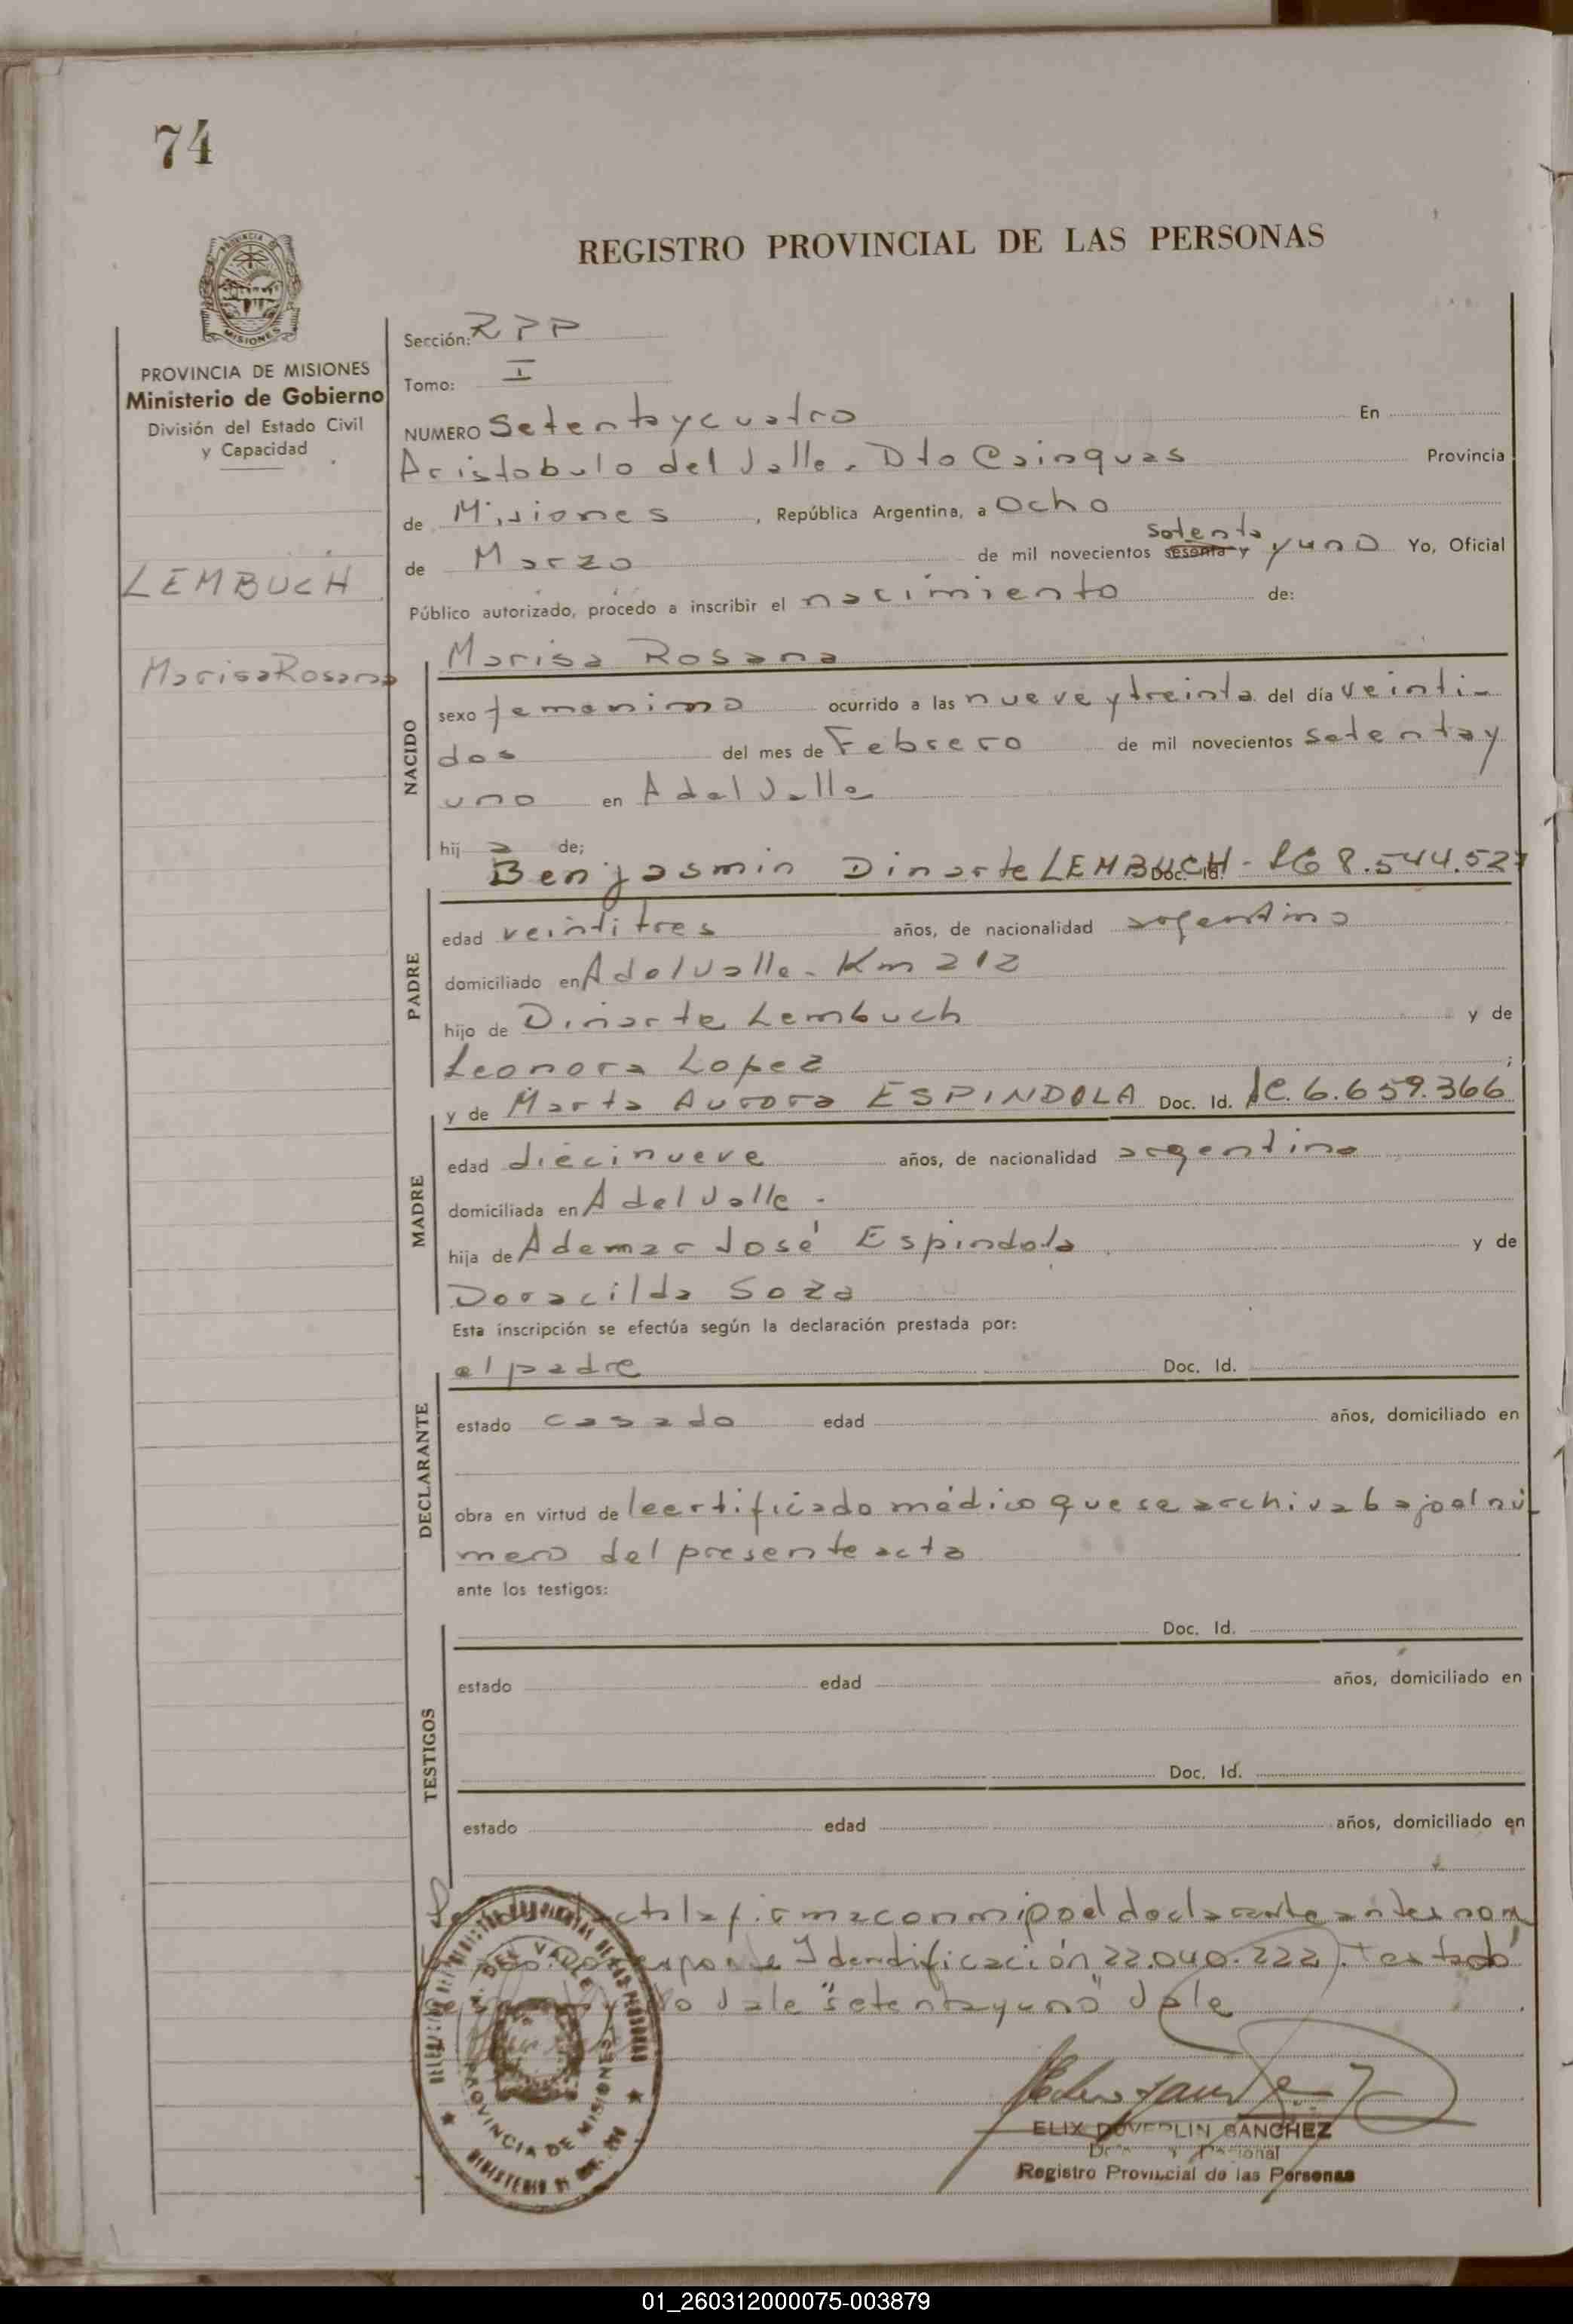 74
REGISTRO PROVINCIAL DE LAS PERSONAS
PROVINCIA DE MISIONES
Ministerio de Gobierno
División del Estado Civil
y Capacidad
LEMBUCH
Marisa Rosana
Sección: RPP
Tomo: I
NUMERO Setenta y cuatro En
Aristobulo del Valle. Dto Cainguas Provincia
de Misiones, República Argentina, a Ocho
setenta
de Marzo de mil novecientos sesenta y y uno Yo, Oficial
Público autorizado, procedo a inscribir el nacimiento de:
Marisa Rosana
NACIDO
sexo femenino ocurrido a las nueve y treinta del día veinti-
dos del mes de Febrero de mil novecientos setenta y
uno en A del Valle
hij a de;
Benjasmin Dinarte LEMBUCH - Doc. Id. 8.544.527
PADRE
edad veintitres años, de nacionalidad argentino
domiciliado en A del Valle - Km 212
hijo de Dinarte Lembuch y de
Leonora Lopez ;
y de Marta Aurora ESPINDOLA Doc. Id. LC. 6.659.366
MADRE
edad diecinueve años, de nacionalidad argentina
domiciliada en A del Valle -
hija de Ademar José Espindola y de
Doracilda Soza
Esta inscripción se efectúa según la declaración prestada por:
el padre Doc. Id.
DECLARANTE
estado casado edad años, domiciliado en
obra en virtud de certificado médico que se archiva bajo el nú-
mero del presente acta
ante los testigos:
Doc. Id.
TESTIGOS
estado edad años, domiciliado en
Doc. Id.
estado edad años, domiciliado en
la firma conmigo el declarante antes nom
Identificación 22.040.222). Testado
vale "setenta y uno" Vale
PROVINCIA DE MISIONES
SANCHEZ
Registro Provincial de las Personas
01_260312000075-003879